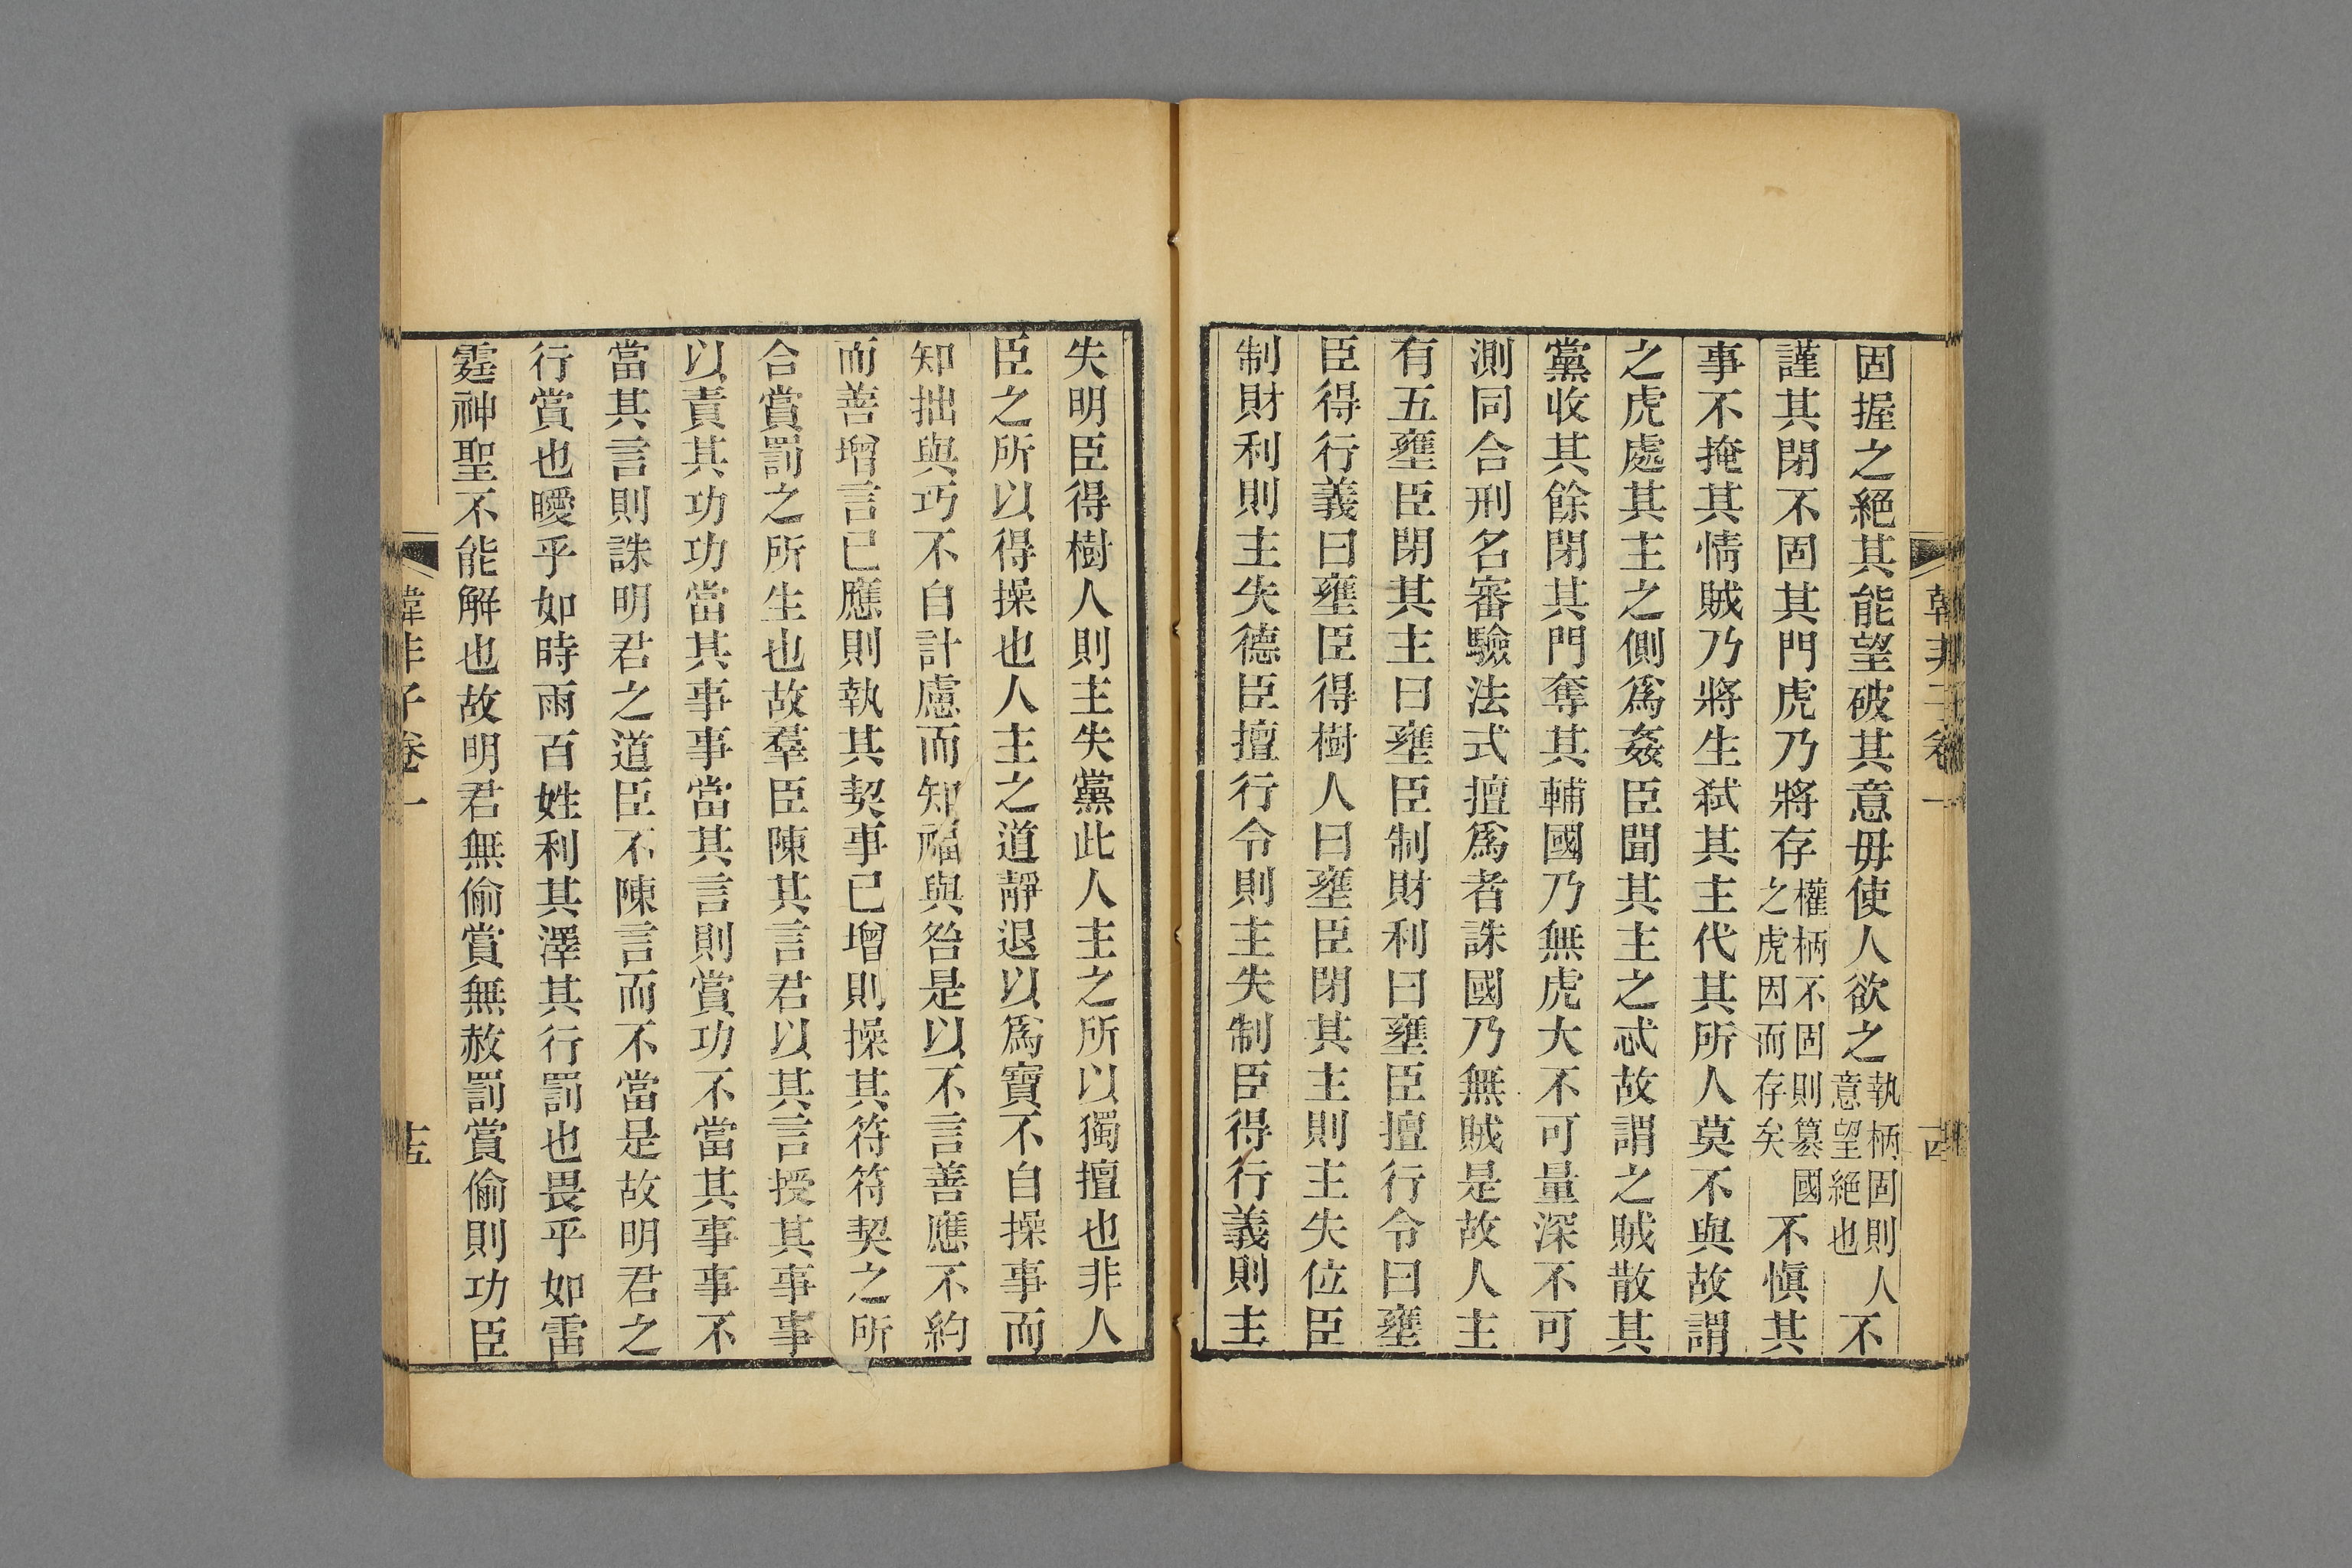 韓非子卷一
固握之絕其能望破其意毋使人欲之執柄固則人意望絕也不
謹其閉不固其門虎乃將存權柄不固則篡國之虎因而存矣不愼其
事不掩其情賊乃將生弑其主代其所人莫不與故謂
之虎處其主之側爲姦臣聞其主之忒故謂之賊散其
黨收其餘閉其門奪其輔國乃無虎大不可量深不可
測同合刑名審驗法式擅爲者誅國乃無賊是故人主
有五壅臣閉其主曰壅臣制財利曰壅臣擅行令曰壅
臣得行義曰壅臣得樹人曰壅臣閉其主則主失位臣
制財利則主失德臣擅行令則主失制臣得行義則主
失明臣得樹人則主失黨此人主之所以獨擅也非人
臣之所以得操也人主之道靜退以爲寶不自操事而
知拙與巧不自計慮而知福與咎是以不言善應不約
而善增言已應則執其契事已增則操其符符契之所
合賞罰之所生也故羣臣陳其言君以其言授其事事
以責其功功當其事事當其言則賞功不當其事事不
當其言則誅明君之道臣不陳言而不當是故明君之
行賞也曖乎如時雨百姓利其澤其行罰也畏乎如雷
霆神聖不能解也故明君無偷賞無赦罰賞偷則功臣
韓非子卷一